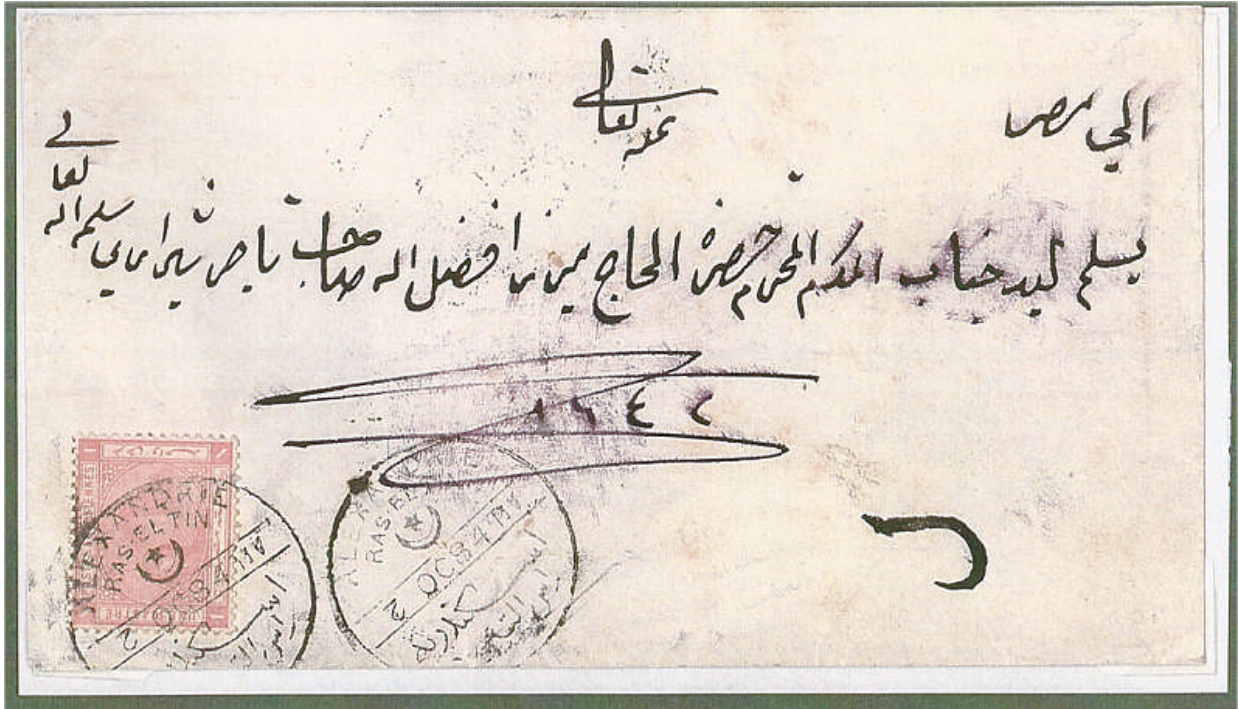 الى مصر
بمنه تعالى
يسلم ليد جناب المكرم المحترم حضرة الحاج ميرزا فضل اله صاحب تاجر شيرازي سلمه اله تعالى
٨٦٤٢
ALEXANDRIE
RAS EL TIN
2 OC 84
اسكندرية
راس التين
ALEXANDRIE
RAS EL TIN
2 OC 84
اسكندرية
راس التين